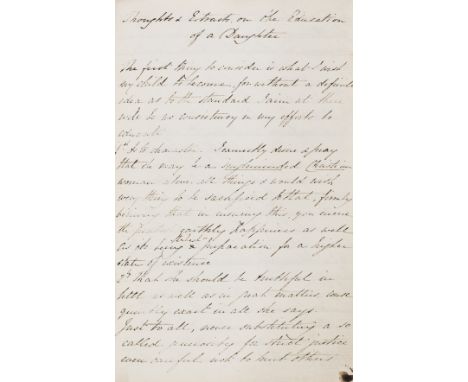 Thoughts & Extracts on the Education
of a Daughter
The first thing to consider is what I wish
my child to become, for without a definite
idea as to the standard I aim at there
will be no consistency in my efforts to
educate
1st As to character. I earnestly desire & pray
that she may be a Christian
woman above all things & would wish
every thing to be sacrificed to that, firmly
believing that in ensuring this, you ensure
the earthly happiness as well
as its being the best preparation for a higher
state of existence
2d That she should be truthful in
little as well as in great matters, conse
quently exact in all she says.
Just to all, never substituting a so
called generosity for strict justice
even careful not to hurt others